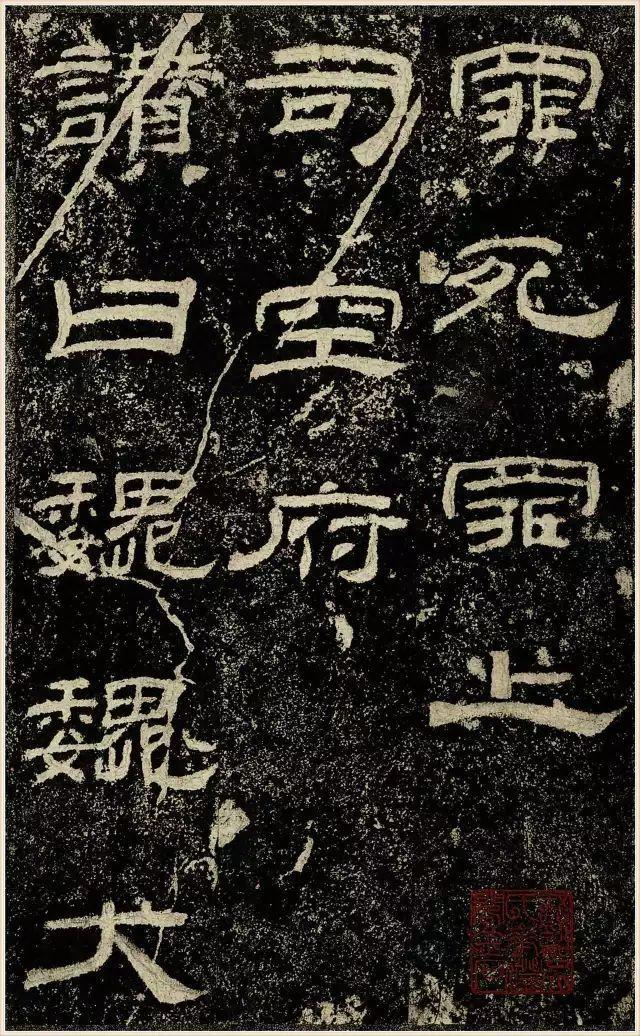 罪死罪上
司空府
讚曰巍巍大